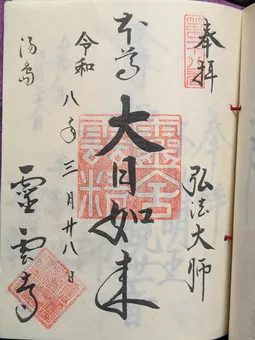 奉拝
弘法大師
本尊
大日如来
令和八年三月廿八日
湯島
靈雲寺